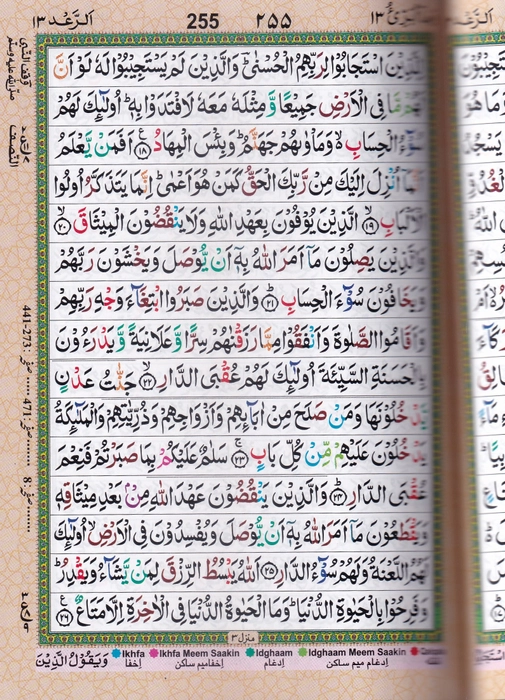 اَلرَّعۡد ١٣
255
٢٥٥
لِلَّذِيۡنَ اسۡتَجَابُوۡا لِرَبِّهِمُ الۡحُسۡنٰىؕ وَالَّذِيۡنَ لَمۡ يَسۡتَجِيۡبُوۡا لَهٗ لَوۡ اَنَّ
لَهُمۡ مَّا فِى الۡاَرۡضِ جَمِيۡعًا وَّمِثۡلَهٗ مَعَهٗ لَافۡتَدَوۡا بِهٖؕ اُولٰٓٮِٕكَ لَهُمۡ
سُوۡٓءُ الۡحِسَابِ ۙ وَمَاۡوٰٮهُمۡ جَهَـنَّمُؕ وَبِئۡسَ الۡمِهَادُ ﴿۱۸﴾ اَفَمَنۡ يَّعۡلَمُ
اَنَّمَاۤ اُنۡزِلَ اِلَيۡكَ مِنۡ رَّبِّكَ الۡحَـقُّ كَمَنۡ هُوَ اَعۡمٰىؕ اِنَّمَا يَتَذَكَّرُ اُولُوا
الۡاَلۡبَابِۙ ﴿۱۹﴾ الَّذِيۡنَ يُوۡفُوۡنَ بِعَهۡدِ اللّٰهِ وَلَا يَنۡقُضُوۡنَ الۡمِيۡثَاقَۙ ﴿۲۰﴾
وَالَّذِيۡنَ يَصِلُوۡنَ مَاۤ اَمَرَ اللّٰهُ بِهٖۤ اَنۡ يُّوۡصَلَ وَيَخۡشَوۡنَ رَبَّهُمۡ
وَيَخَافُوۡنَ سُوۡٓءَ الۡحِسَابِؕ ﴿۲۱﴾ وَالَّذِيۡنَ صَبَرُوا ابۡتِغَآءَ وَجۡهِ رَبِّهِمۡ
وَاَقَامُوا الصَّلٰوةَ وَاَنۡفَقُوۡا مِمَّا رَزَقۡنٰهُمۡ سِرًّا وَّعَلَانِيَةً وَّيَدۡرَءُوۡنَ
بِالۡحَسَنَةِ السَّيِّئَةَ اُولٰٓٮِٕكَ لَهُمۡ عُقۡبَى الدَّارِۙ ﴿۲۲﴾ جَنّٰتُ عَدۡنٍ
يَّدۡخُلُوۡنَهَا وَمَنۡ صَلَحَ مِنۡ اٰبَآٮِٕهِمۡ وَاَزۡوَاجِهِمۡ وَذُرِّيّٰتِهِمۡ وَالۡمَلٰٓٮِٕكَةُ
يَدۡخُلُوۡنَ عَلَيۡهِمۡ مِّنۡ كُلِّ بَابٍۚ ﴿۲۳﴾ سَلٰمٌ عَلَيۡكُمۡ بِمَا صَبَرۡتُمۡ فَنِعۡمَ
عُقۡبَى الدَّارِؕ ﴿۲۴﴾ وَالَّذِيۡنَ يَنۡقُضُوۡنَ عَهۡدَ اللّٰهِ مِنۡۢ بَعۡدِ مِيۡثَاقِهٖ
وَيَقۡطَعُوۡنَ مَاۤ اَمَرَ اللّٰهُ بِهٖۤ اَنۡ يُّوۡصَلَ وَيُفۡسِدُوۡنَ فِى الۡاَرۡضِۙ اُولٰٓٮِٕكَ
لَهُمُ اللَّعۡنَةُ وَلَهُمۡ سُوۡۤءُ الدَّارِ ﴿۲۵﴾ اَللّٰهُ يَبۡسُطُ الرِّزۡقَ لِمَنۡ يَّشَآءُ وَيَقۡدِرُؕ
وَفَرِحُوۡا بِالۡحَيٰوةِ الدُّنۡيَاؕ وَمَا الۡحَيٰوةُ الدُّنۡيَا فِى الۡاٰخِرَةِ اِلَّا مَتَاعٌ ﴿۲۶﴾
منزل ٣
وَيَقُوۡلُ الَّذِيۡنَ
Ikhfa
Ikhfa Meem Saakin
Idghaam
Idghaam Meem Saakin
إخفا
إخفا میم ساکن
إدغام
إدغام میم ساکن
النصف
441-273
471
8